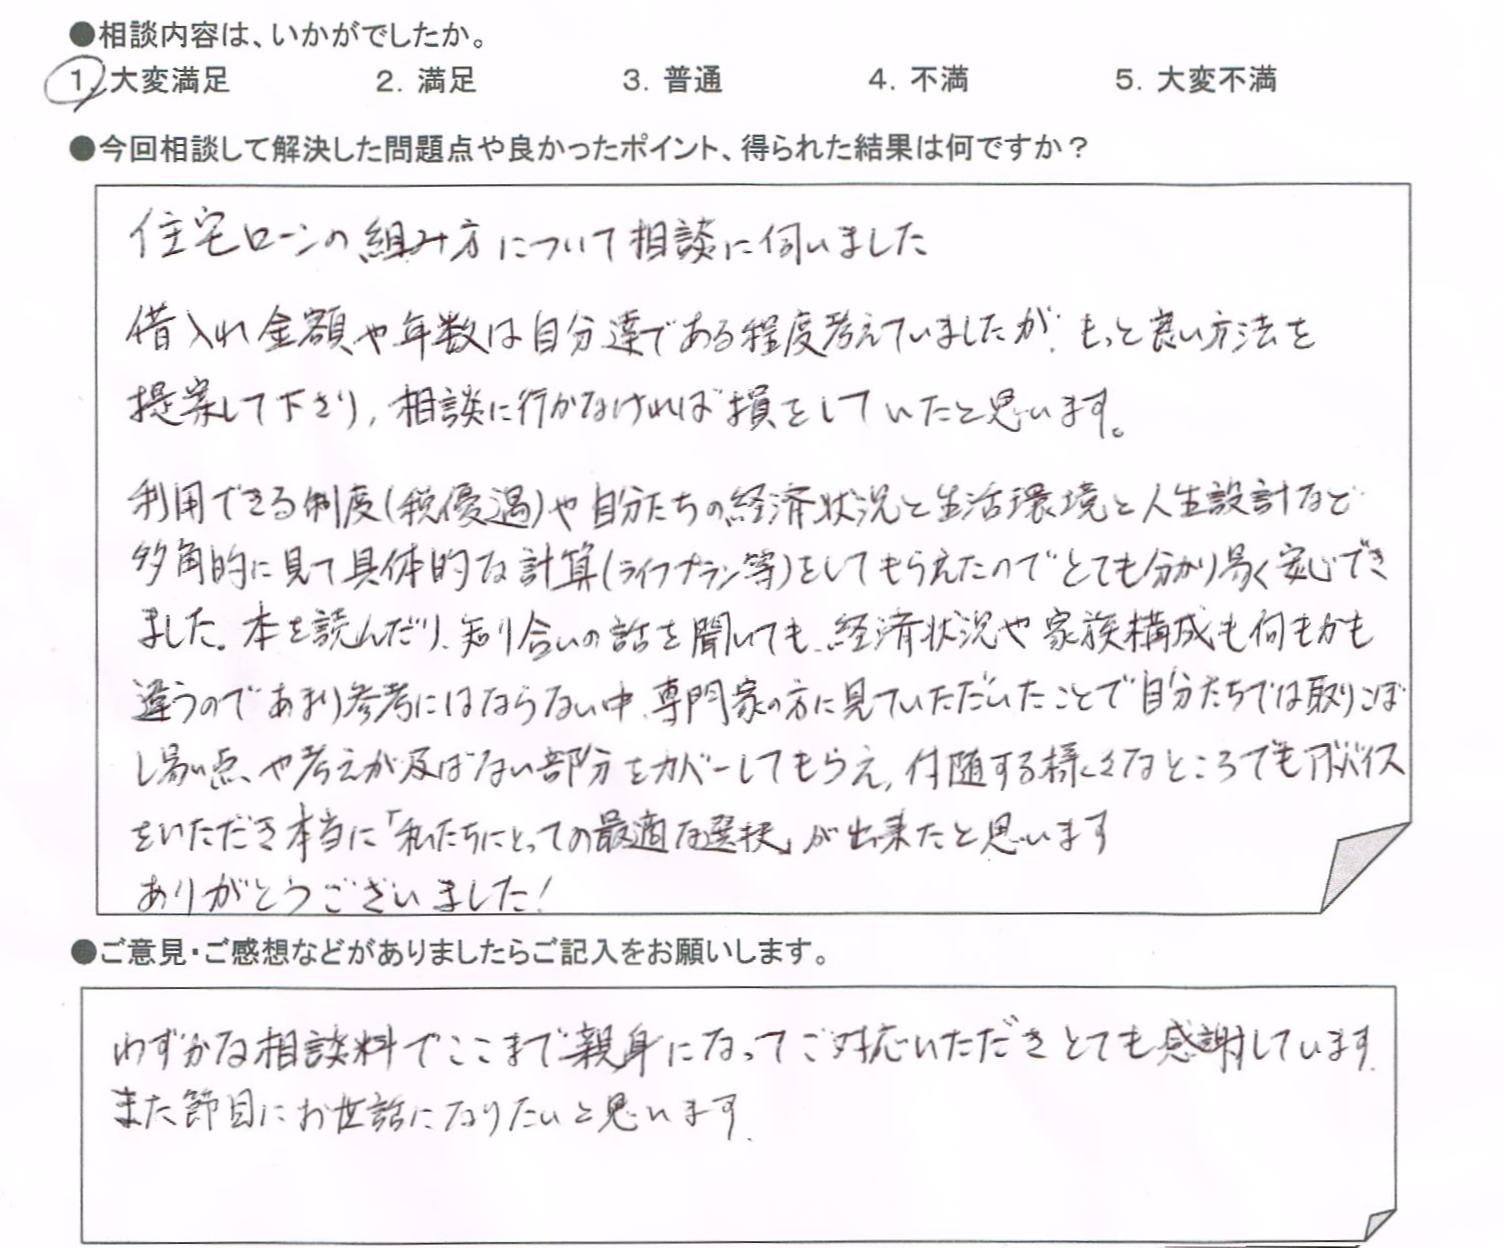 ●相談内容は、いかがでしたか。
1. 大変満足 2. 満足 3. 普通 4. 不満 5. 大変不満
●今回相談して解決した問題点や良かったポイント、得られた結果は何ですか？
住宅ローンの組み方について相談に伺いました
借入れ金額や年数は自分達である程度考えていましたが、もっと良い方法を
提案して下さり、相談に行かなければ損をしていたと思います。
利用できる制度(税優遇)や自分たちの経済状況と生活環境と人生設計など
多角的に見て具体的な計算(ライフプラン等)をしてもらえたのでとても分かり易く安心でき
ました。本を読んだり、知り合いの話を聞いても、経済状況や家族構成も何もかも
違うのであまり参考にはならない中、専門家の方に見ていただいたことで自分たちでは取りこぼ
し易い点、や考えが及ばない部分をカバーしてもらえ、付随する様々なところでもアドバイス
をいただき本当に「私たちにとっての最適な選択」が出来たと思います
ありがとうございました!
●ご意見・ご感想などがありましたらご記入をお願いします。
わずかな相談料でここまで親身になってご対応いただきとても感謝しています.
また節目にお世話になりたいと思います.